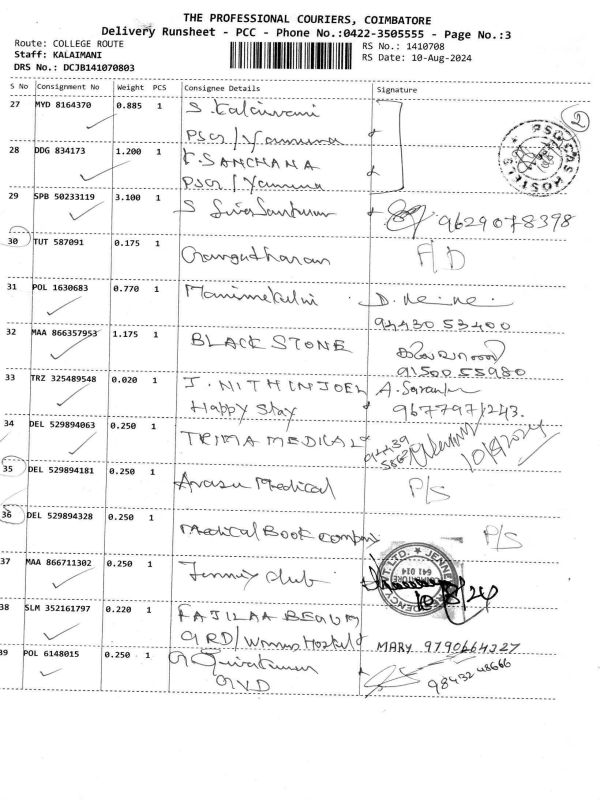 THE PROFESSIONAL COURIERS, COIMBATORE
Delivery Runsheet - PCC - Phone No.:0422-3505555 - Page No.:3
Route: COLLEGE ROUTE
Staff: KALAIMANI
DRS No.: DCJB141070803
RS No.: 1410708
RS Date: 10-Aug-2024
S No Consignment No Weight PCS Consignee Details Signature
2
27 MYD 8164370 0.885 1 S. Kalaivani
28 DDG 834173 1.200 1 SANCHANA
29 SPB 50233119 3.100 1 S 9629078398
30 TUT 587091 0.175 1 Gangatharan F/D
31 POL 1630683 0.770 1 Manimekalai
94430 53400
32 MAA 866357953 1.175 1 BLACK STONE
91500 55980
33 TRZ 325489548 0.020 1 J. NITHIN JOEL
Happy Stay 9677971243.
34 DEL 529894063 0.250 1 MEDICAL 10/8/2024
35 DEL 529894181 0.250 1 Arasu Medical P/S
36 DEL 529894328 0.250 1 Medical Book Company P/S
37 MAA 866711302 0.250 1 club 10/8/24
641 014
38 SLM 352161797 0.220 1 FAJILAA BEGUM
GRD/Womens Hostel MARY 9790664327
39 POL 6148015 0.250 1 G Sivakumar
GVD 98432 48666